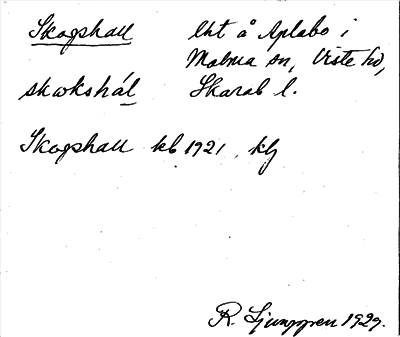 Skogshall lht å Aplabo i
Malma sn, Viste hd,
skωkshál Skarab l.
Skogshall kb 1921, klj
R. Ljunggren 1929.